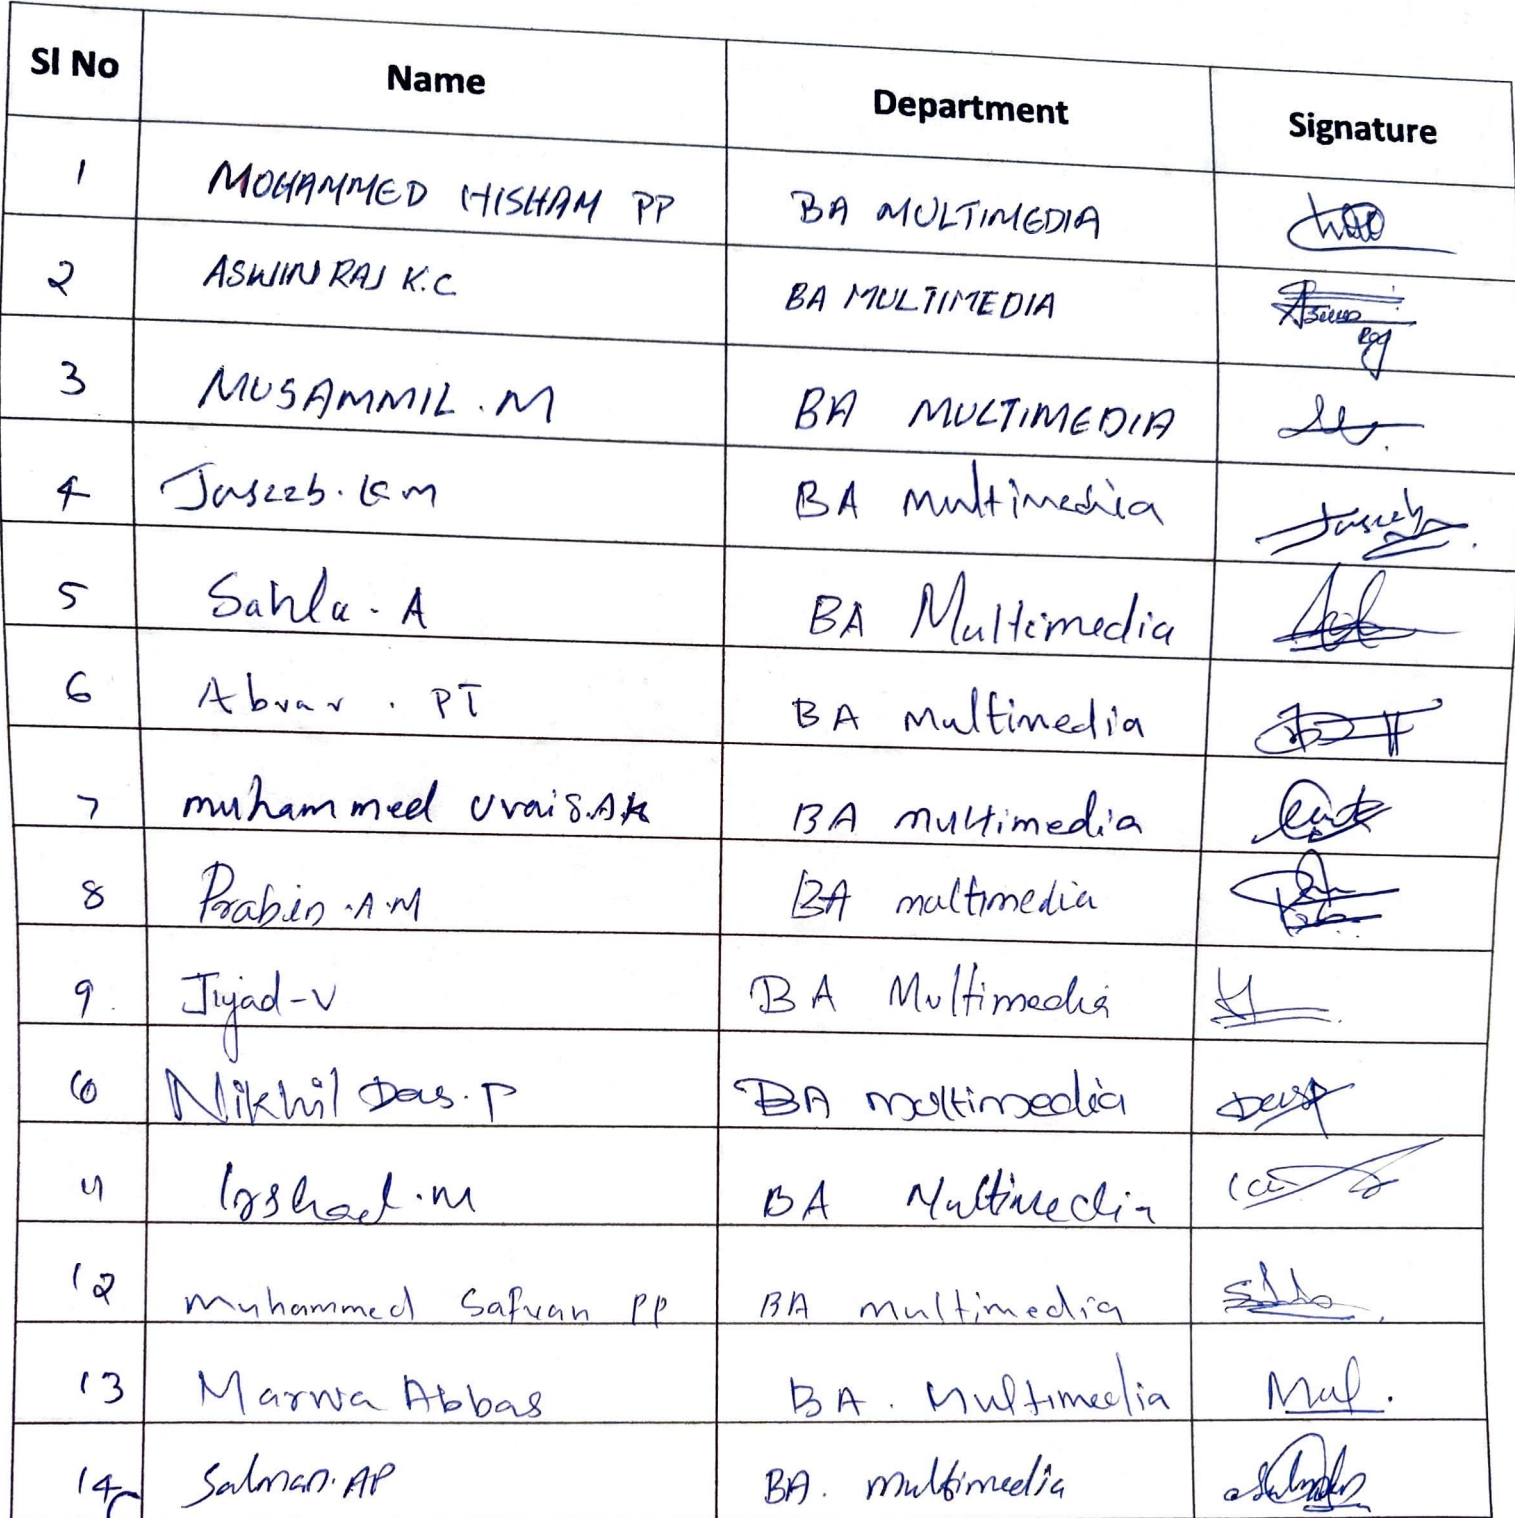 Sl No Name Department Signature
1 MOHAMMED HISHAM PP BA MULTIMEDIA
2 ASWIN RAJ K.C BA MULTIMEDIA
3 MUSAMMIL.M BA MULTIMEDIA
4 Jaseeb.K M BA Multimedia Jaseeb
5 Sahla.A BA Multimedia
6 Abrar. PT BA Multimedia
7 muhammed Uvais.AK BA multimedia
8 Prabin.A.M BA multimedia
9. Jiyad-V BA Multimedia
10 Nikhil Das.P BA multimedia
11 Irshad.M BA Multimedia
12 Muhammed Safvan PP BA multimedia
13 Marwa Abbas BA. Multimedia
14 Salman.AP BA. multimedia